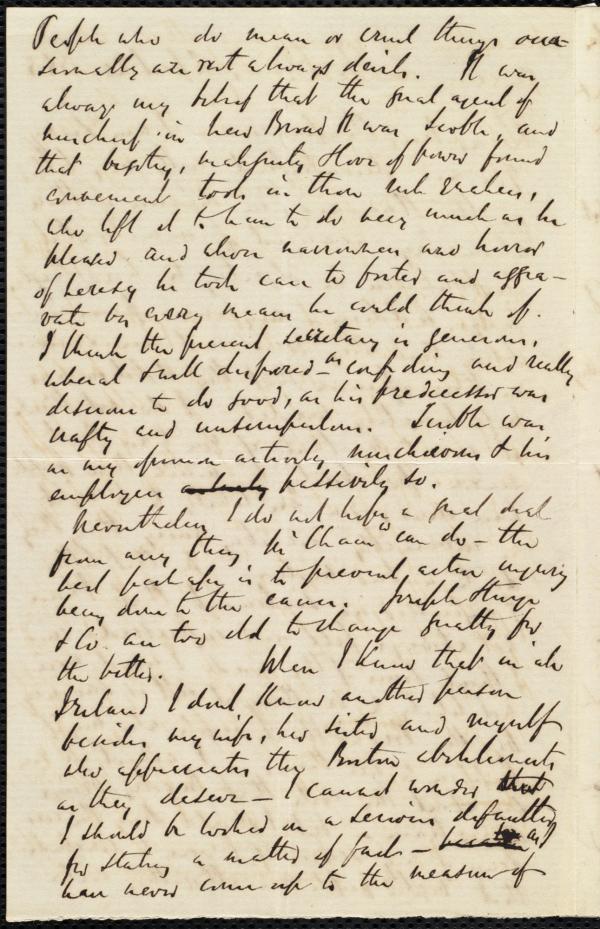 People who do mean or cruel things occa-
sionally are not always devils. It was
always my belief that the great agent of
mischief in New Broad St was Scoble, and
that bigotry, malignity & love of power found
convenient tools in those rich Quakers,
who left it to him to do very much as he
pleased and whose narrowness and horror
of heresy he took care to foster and aggra-
vate by every means he could think of.
I think the present secretary is generous,
liberal & well disposed - as confiding and really
desirous to do good, as his predecessor was
crafty and unscrupulous. Scoble was
in my opinion actively mischievous & his
employers actively passively so.
Nevertheless I do not hope a great deal
from any thing Mr Chace can do - the
best perhaps is to prevent active injury
being done to the cause. Joseph Sturge
& Co. are too old to change greatly for
the better. When I know that in all
Ireland I dont know another person
besides my wife, her sister and myself
who appreciates the Boston abolitionists
as they deserve - I cannot wonder that
I should be looked on a serious
for stating a matter of fact - and
have never come up to the measure of